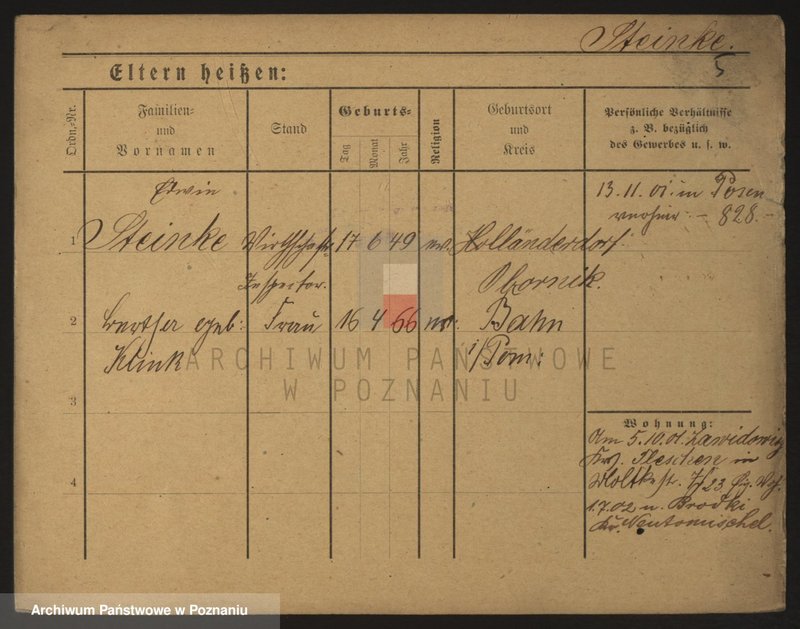 Steinke.
5
Eltern heißen:
Ordn.-Nr.
Familien- und Vornamen
Stand
Geburts-
Tag
Monat
Jahr
Religion
Geburtsort und Kreis
Persönliche Verhältnisse
z. B. bezüglich
des Gewerbes u. s. w.
Edwin
13.11.01. in Posen
828.-
1 Steinke Wirthschafts 17 6 49 ev. Holländerdorf
Inspector. Obornik.
2 Bertha geb: Frau 16 4 66 ev. Bahn
Klink i/Pom:
3
4
Wohnung:
Am 5.10.01. Lawidowig
Krs. Pleschen in
Moltkestr. 23
1.7.02 n. Brodki
Kr. Neutomischel.
ARCHIWUM PAŃSTWOWE
W POZNANIU
Archiwum Państwowe w Poznaniu